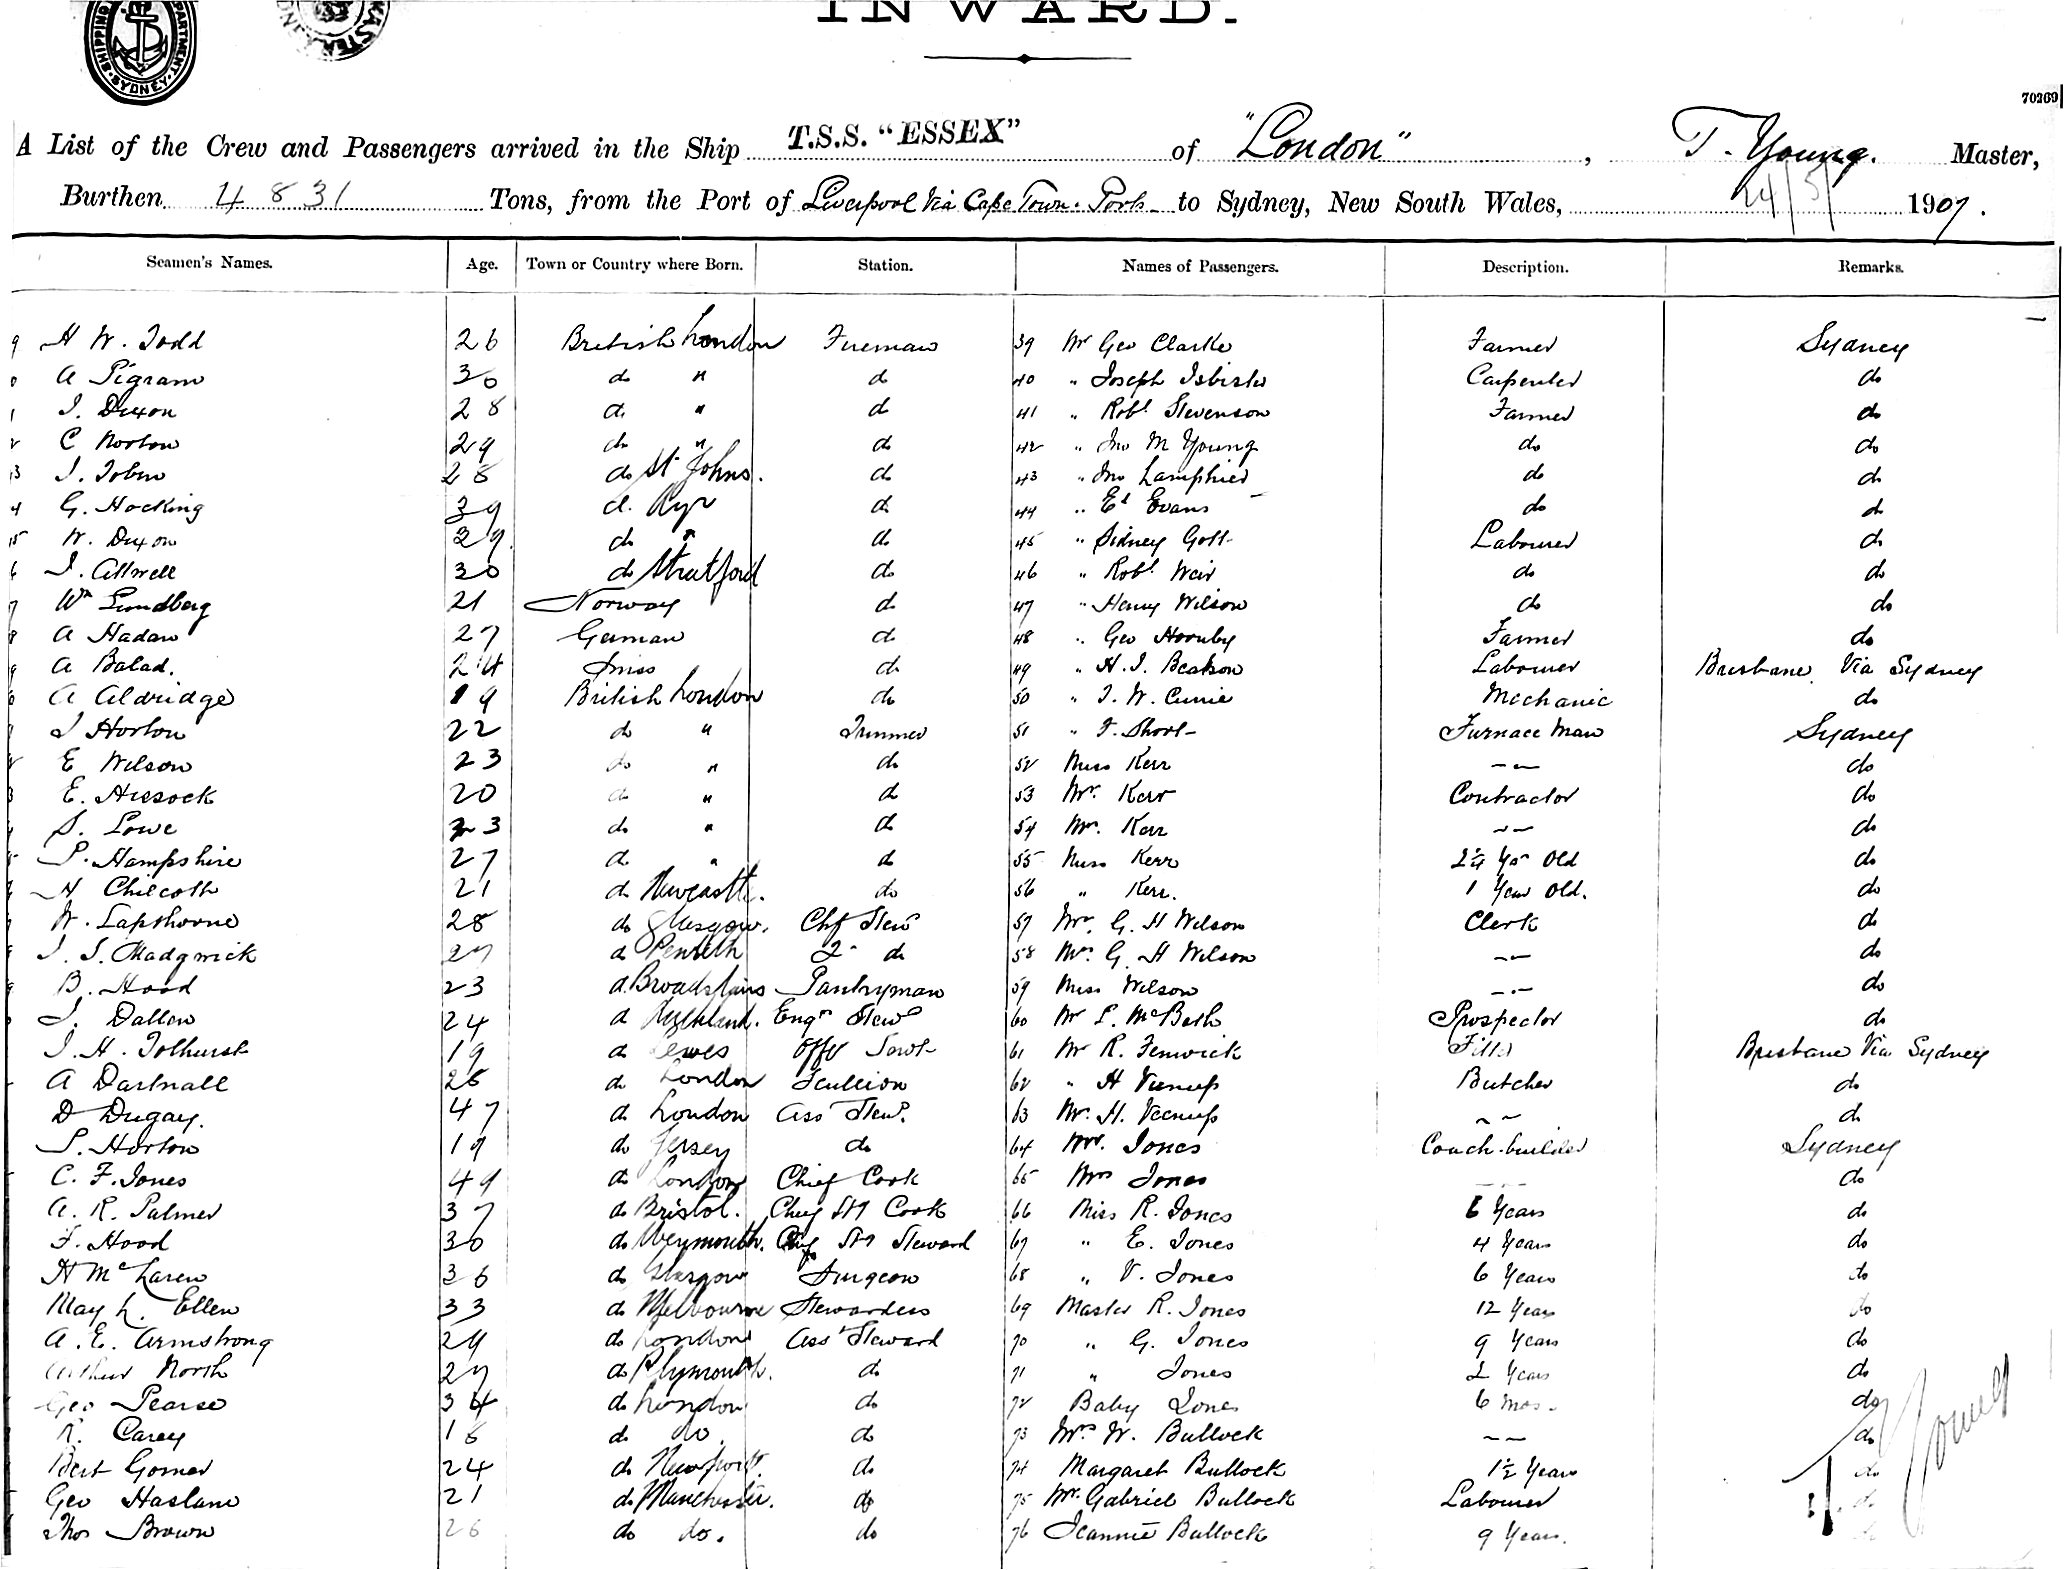 SHIPPING DEPARTMENT. SYDNEY.
INWARD.
70269
A List of the Crew and Passengers arrived in the Ship T.S.S. "ESSEX" of "London", T. Young. Master,
Burthen 4831 Tons, from the Port of Liverpool Via Cape Town. to Sydney, New South Wales, 24/5/ 1907.
Seamen's Names. Age. Town or Country where Born. Station. Names of Passengers. Description. Remarks.
9 H W. Todd 26 British London Fireman 39 Mr Geo Clarke Farmer Sydney
0 A Pigram 30 do " do 40 " Joseph Isbister Carpenter do
1 J. Dixon 28 do " do 41 " Robt Stevenson Farmer do
2 C Norton 29 do " do 42 " Jno M Young do do
13 J. Tobin 28 do St Johns. do 43 " Jno Lamphier do do
4 G. Hocking 39 d. Rye do 44 " Ed Evans do do
15 W. Dixon 29. do " do 45 " Sidney Gott Labourer do
6 J. Attwell 30 do Stratford do 46 " Robt Weir do do
7 Wm Lundberg 21 Norway do 47 " Henry Wilson do do
8 A Hadan 27 German do 48 " Geo Hornby Farmer do
9 A Balad. 24 Swiss do 49 " H. J. Beatson Labourer Brisbane Via Sydney
0 A Aldridge 19 British London do 50 " J. W. Currie Mechanic do
J Horton 22 do " Trimmer 51 " F. Short Furnace Man Sydney
2 E Wilson 23 do " do 52 Miss Kerr -- do
3 E. Hissock 20 do " do 53 Mr. Kerr Contractor do
S. Lowe 23 do " do 54 Mrs. Kerr -- do
P. Hampshire 27 do " do 55 Miss Kerr 2¼ Yrs Old do
H Chilcoth 21 do Newcastle. do 56 " Kerr. 1 Year Old. do
W. Lapthorne 28 do Glasgow. Chf Stew 57 Mr. G. H Wilson Clerk do
J. S. Madgwick 27 do Penrith 2 do 58 Mrs G. H Wilson -- do
B. Hood 23 d. Broadstairs Pantryman 59 Miss Wilson -.- do
J. Dallow 24 d Engr Stewd 60 Mr L. McBeth Prospector do
J. H. Tolhurst 19 d Lewes 61 Mr R. Fenwick Fitter Brisbane Via Sydney
A Dartnall 26 do London Scullion 62 " H Butcher do
D Dugay. 47 do London Ass Stewd. 63 Mrs. H. -- do
S. Horton 19 do Jersey do 64 Mr. Jones Coach-builder Sydney
C. F. Jones 49 do London Chief Cook 65 Mrs Jones -- do
A. R. Palmer 37 do Bristol. Cook 66 Miss R. Jones 6 Years do
F. Hood 30 do Weymouth. Steward 67 " E. Jones 4 Years do
H McLaren 36 do Glasgow Surgeon 68 " V. Jones 6 Years do
May L. Ellen 33 do Melbourne Stewardess 69 Master R. Jones 12 Years do
A. E. Armstrong 29 do London Asst Steward 70 " G. Jones 9 Years do
Arthur North 27 do Plymouth. do 71 " Jones 2 Years do
Geo Pearse 34 do London do 72 Baby Jones 6 mos. do
R. Carey 18 do do. do 73 Mrs W. Bullock -- do
Bert Gomer 24 do Newport. do 74 Margaret Bullock 1½ Years do
Geo Haslam 21 do Manchester. do 75 Mr. Gabriel Bullock Labourer do
Thos Brown 26 do do. do 76 Jeannie Bullock 9 Years. do
T. Young